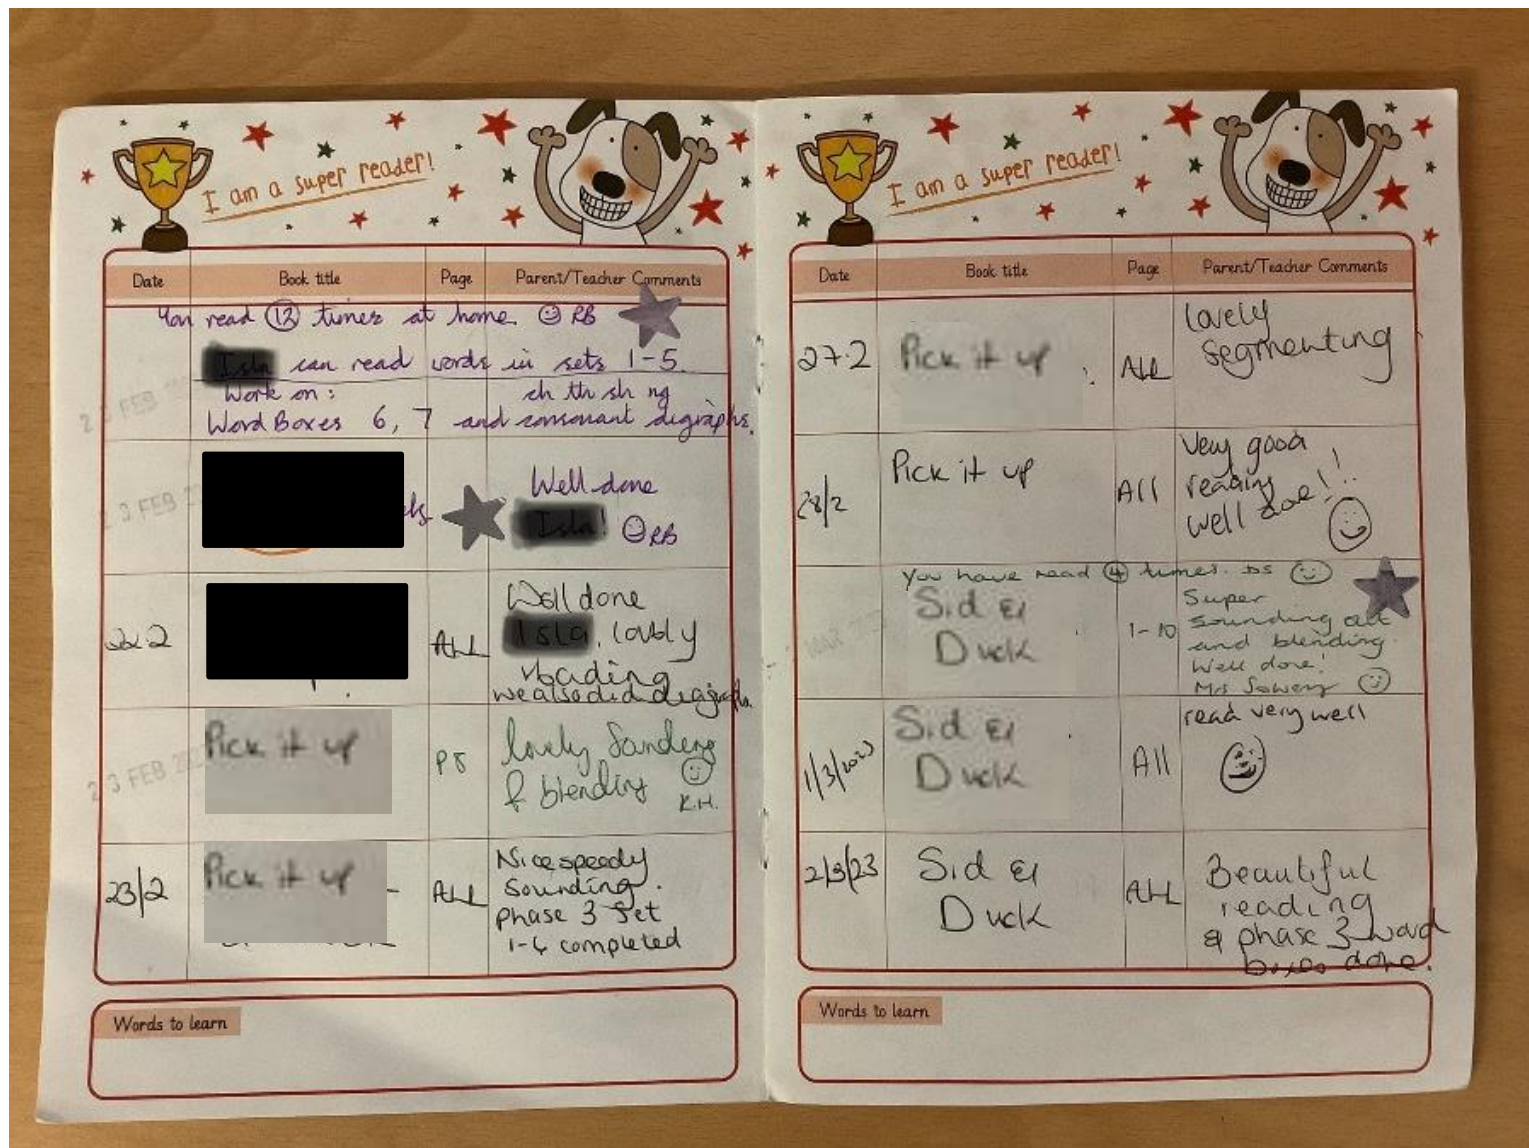 I am a super reader!
Date Book title Page Parent/Teacher Comments
You read 12 times at home. RB
can read words in sets 1-5.
Work on: ch th sh ng
Word Boxes 6, 7 and consonant digraphs.
23 FEB
Well done
RB
22.2 ALL Well done
lovely
reading
we also did diagraphs.
23 FEB
Pick it up P8 lovely Sanderg
& blending
K.H.
23/2 Pick it up ALL Nice speedy
sounding.
phase 3 set
1-6 completed
Words to learn
I am a super reader!
Date Book title Page Parent/Teacher Comments
27.2 Pick it up ALL lovely
segmenting
28/2 Pick it up All Very good
reading
well done!!
You have read 4 times. DS
Sid &
Duck
1-10 Super
sounding out
and blending.
Well done!
Mrs
MAR
1/3/2023 Sid &
Duck
All read very well
2/3/23 Sid &
Duck
ALL Beautiful
reading
& phase 3 word
boxes done.
Words to learn